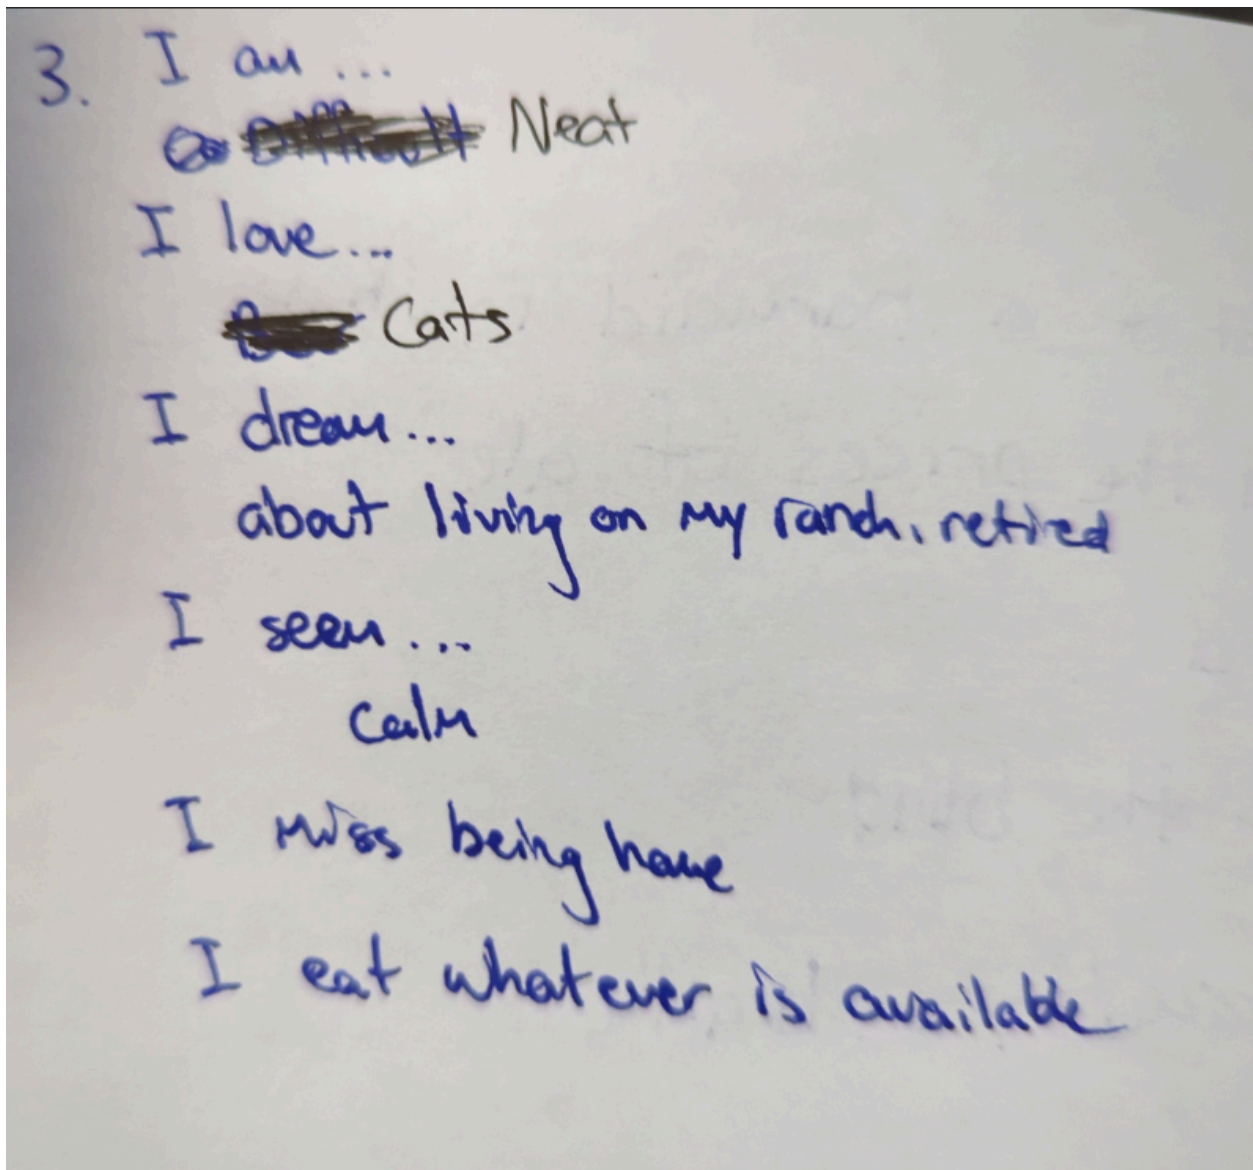 3. I am ...
Difficult Neat
I love...
Cats
I dream...
about living on my ranch, retired
I seem...
Calm
I miss being home
I eat whatever is available